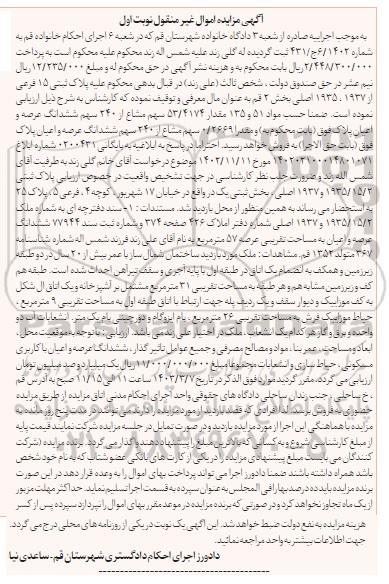 آگهی مزایده اموال غیر منقول نوبت اول
به موجب اجراییه صادره از شعبه ۳ دادگاه خانواده شهرستان قم که در شعبه ۶ اجرای احکام خانواده قم به
شماره ۱۴۰۲/۶ج/۴۳۱ ثبت گردیده له گلی زند علیه شمس اله زند محکوم علیه محکوم است به پرداخت
۲/۴۴۸/۳۰۰/۰۰۰ ریال بابت محکوم به و هزینه نشر آگهی در حق محکوم له و مبلغ ۱۲/۲۳۵/۰۰۰ ریال
نیم عشر در حق صندوق دولت، شخص ثالث (علی زند) در قبال بدهی محکوم علیه پلاک ثبتی ۱۵ فرعی
از ۱۹۳۷ ، ۱۹۳۵ اصلی بخش ۲ قم به عنوان مال معرفی و توقیف نموده که کارشناس به شرح ذیل ارزیابی
نموده است. ضمنا حسب مواد ۵۱ و ۱۳۵ مقدار ۵۳/۴۱۷۴ سهم مشاع از ۲۴۰ سهم ششدانگ عرصه و
اعیان پلاک فوق (بابت محکوم به) و مقدار ۰/۲۶۶۹ سهم مشاع از ۲۴۰ سهم ششدانگ عرصه و اعیان پلاک
فوق (بابت حق الاجرا) به فروش خواهد رسید. احتراما در پاسخ به ابلاغیه به بایگانی ۰۲۰۰۴۳۱ شماره ابلاغ
۱۴۰۲۰۳۱۰۰۰۱۴۸۰۱۰۷۱ مورخ ۱۴۰۲/۱۱/۱۱ موضوع درخواست آقای خانم گلی زند به طرفیت آقای
شمس الله زند و ضرورت جلب نظر کارشناسی در جهت تشخیص واقعیت در خصوص ارزیابی پلاک ثبتی
۱۹۳۵/۱۵/۲ و ۱۹۳۷ اصلی، بخش ثبتی یک در واقع در خیابان ۱۷ شهریور، کوچه ۴، فرعی ۵، پلاک ۲۵
به استحضار می رساند به همین منظور از محل بازدید شد. مستندات: ۱- سند دفترچه ای به شماره ملک
۱۹۳۵/۱۵/۲ و ۱۹۳۷ اصلی شماره دفتر املاک ۴۲۶ صفحه ۳۷۴ و شماره ثبت سند ۷۷۹۴۴ ششدانگ
عرصه و اعیان به مساحت تقریبی عرصه ۵۷ مترمربع به نام آقای علی زند فرزند شمس اله شماره شناسنامه
۳۶۷ متولد ۱۳۵۲ قم. مشاهدات: ملک مورد بازدید ساختمان شمال ساز با عمر بیش از ۲۰ سال در دو طبقه
زیرزمین و همکف به انضمام یک اتاق در طبقه اول با پایه آجری و سقف تیرآهن احداث شده است. طبقه هم
کف و زیرزمین مشابه هم و هر طبقه به مساحت تقریبی ۳۱ مترمربع مشتمل بر آشپزخانه و یک اتاق ال شکل
به کف موزاییک و دیوار سقف و یک ردیف پله جهت ارتباط با اتاق طبقه اول به مساحت تقریبی ۹ مترمربع،
حیاط موزاییک فرش به مساحت تقریبی ۲۶ مترمربع، بام ایزوگام و دورچینی بام یک متر. انشعابات اب دو
واحده و برق و گاز هر کدام یک انشعاب. ملک در اختیار علی زند می باشد. ارزیابی: با توجه به موقعیت محل،
ابعاد و مساحت، عمر بنا، مواد و مصالح مصرفی و جمیع عوامل تاثیر گذار، ششدانگ عرصه و اعیان با کاربری
مسکونی، حیاط سازی و انشعابات مجموعا مبلغ ۱۱/۰۰۰/۰۰۰/۰۰۰ ریال یک میلیارد و صد میلیون تومان
ارزیابی می گردد، مقرر گردید موارد فوق الذکر در تاریخ ۱۴۰۳/۳/۷ ساعت ۱۱ الی ۱۱/۱۵ صبح به آدرس قم
، خ ساحلی، جنب زندان ساحلی دادگاه های حقوقی واحد اجرای احکام مدنی اتاق مزایده از طریق مزایده
حضوری به فروش برسد لذا افرادی که قصد بازدید از مورد مزایده را دارند می توانند در مدت پنج روز مانده به
مزایده با هماهنگی این اجرا از مورد مزایده بازدید و در صورت تمایل در جلسه مزایده شرکت نمایند. قیمت پایه
از مبلغ کارشناسی شروع و به کسانی که بالاترین مبلغ را پیشنهاد دهند واگذار می گردد. برنده مزایده (شرکت
کنندگان می بایست مبلغ پیشنهادی مزایده را در یکی از کارت های بانکی عضو شتاب که به نام خود شخص
باشد همراه داشته باشند ضمنا دادورز اجرا می تواند پرداخت بهای اموال را به وعده قرار دهد در این صورت
برنده مزایده باید ده درصد بها را فی المجلس به عنوان سپرده به قسمت اجرا تسلیم نماید. حداکثر مهلت مزبور
از یک ماه تجاوز نخواهد کرد و در صورتی که برنده مزایده در موعد مقرر بهای اموال را نپردازد سپرده پس از کسر
هزینه مزایده به نفع دولت ضبط خواهد شد. این آگهی یک نوبت در یکی از روزنامه های محلی درج می گردد.
جهت اطلاعات بیشتر به واحد مراجعه نمائید.
دادورز اجرای احکام دادگستری شهرستان قم - ساعدی نیا